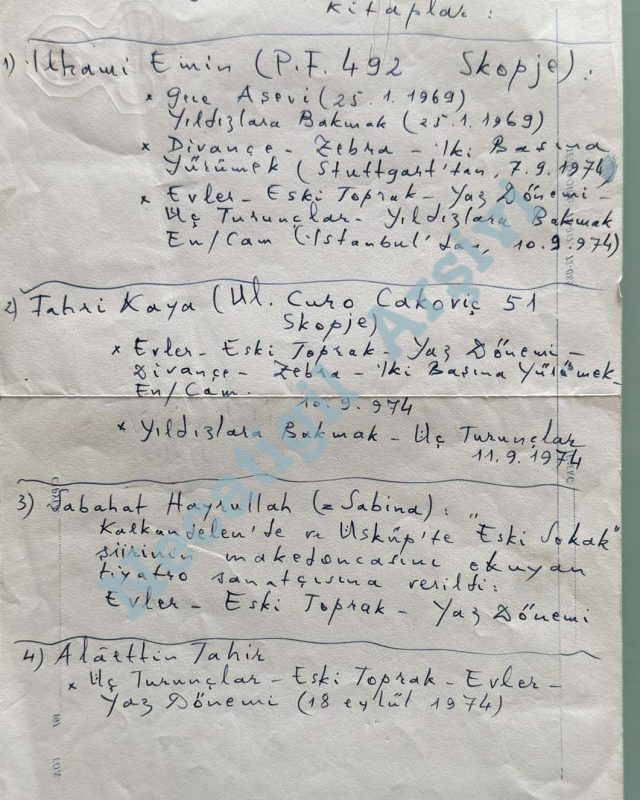 kitaplar:
1) İlhami Emin (P.F. 492 Skopje):
* Gece Aşevi (25.1.1969)
Yıldızlara Bakmak (25.1.1969)
* Divançe - Zebra - İki Başına
Yürümek (Stuttgart'tan, 7.9.1974)
* Evler - Eski Toprak - Yaz Dönemi -
Üç Turunçlar - Yıldızlara Bakmak
En/Cam (İstanbul'dan, 10.9.974)
2) Fahri Kaya (Ul. Curo Cakoviç 51
Skopje)
* Evler - Eski Toprak - Yaz Dönemi -
Divançe - Zebra - İki Başına Yürümek -
En/Cam. 10.9.974
* Yıldızlara Bakmak - Üç Turunçlar
11.9.1974
3) Sabahat Hayrullah (= Sabina):
Kalkandelen'de ve Üsküp'te "Eski Sokak"
şiirinin makedoncasını okuyan
tiyatro sanatçısına verildi:
Evler - Eski Toprak - Yaz Dönemi
4) Alâettin Tahir
* Üç Turunçlar - Eski Toprak - Evler -
Yaz Dönemi (18 eylül 1974)
Necatigil Arşivi